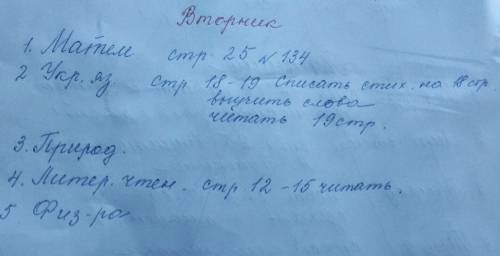 Вторник
1. Матем стр 25 № 134
2 Укр. яз. стр 18-19 Списать стих. на 18 стр.
выучить слова
читать 19 стр.
3. Природ.
4. Литер. чтен. стр 12-15 читать.
5 Физ-ра